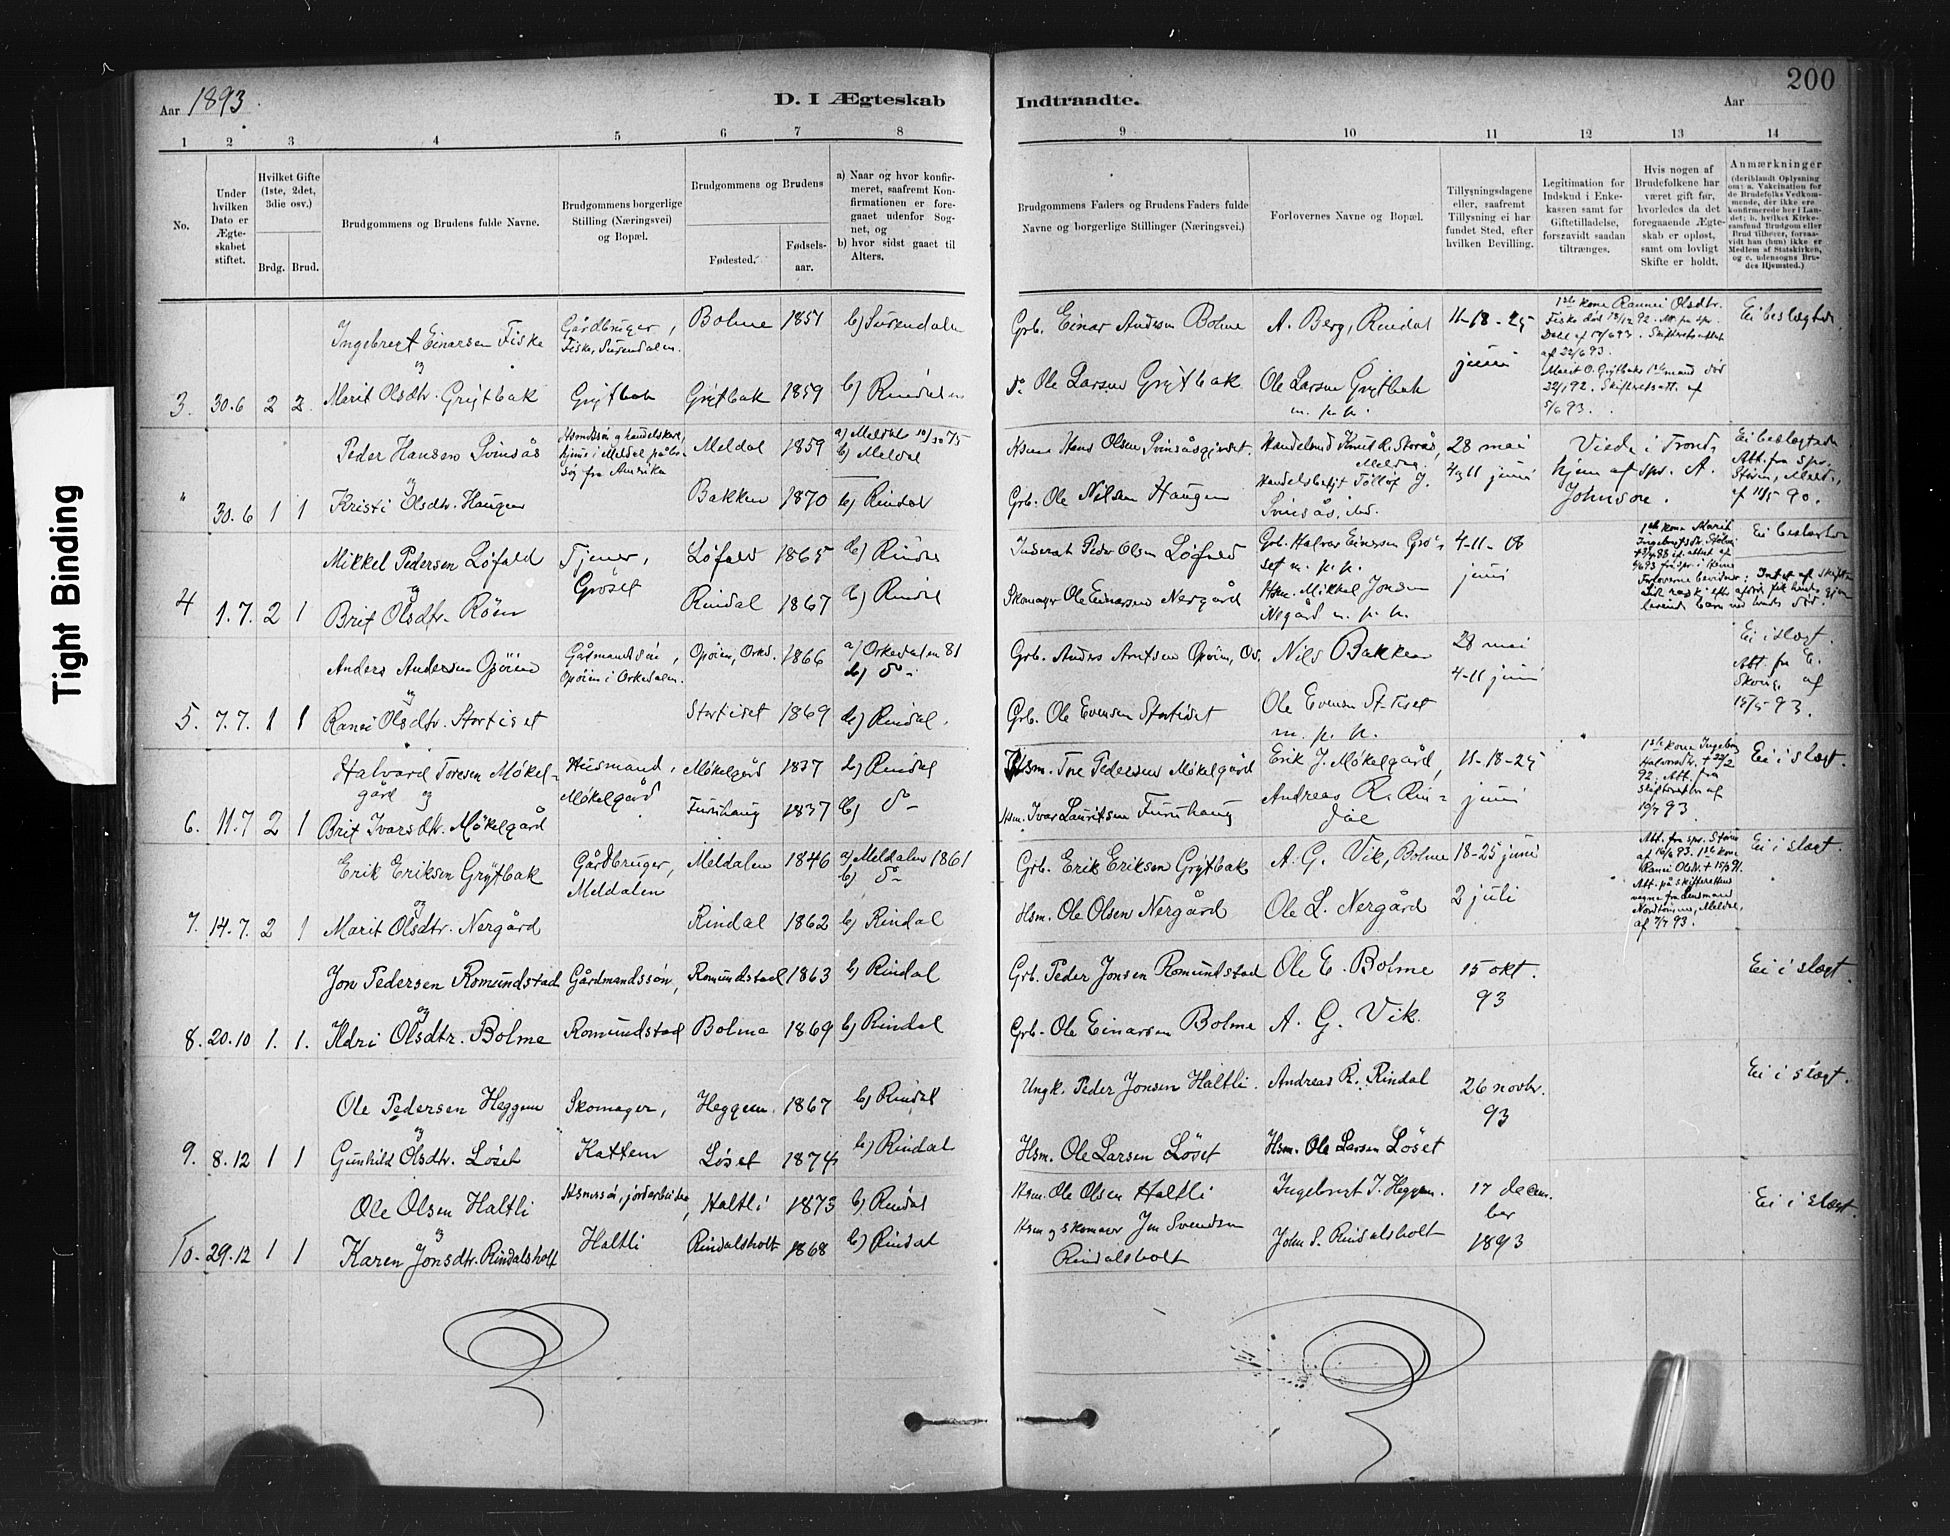 Tight Binding
Aar 1893.
D. I Ægteskab
Indtraadte.
Aar
200
1 2 3 4 5 6 7 8
9 10 11 12 13 14
No.
Under hvilken Dato er Ægteskabet stiftet.
Hvilket Gifte (1ste, 2det, 3die osv.)
Brdg. Brud.
Brudgommens og Brudens fulde Navne.
Brudgommens borgerlige Stilling (Næringsvei) og Bopæl.
Brudgommens og Brudens
Fødested.
Fødselsaar.
a) Naar og hvor konfirmeret, saafremt Konfirmationen er foregaaet udenfor Sognet, og
b) hvor sidst gaaet til Alters.
Brudgommens Faders og Brudens Faders fulde Navne og borgerlige Stillinger (Næringsvei.)
Forlovernes Navne og Bopæl.
Tillysningsdagene eller, saafremt Tillysning ei har fundet Sted, efter hvilken Bevilling.
Legitimation for Indskud i Enkekassen samt for Giftetilladelse, forsaavidt saadan tiltrænges.
Hvis nogen af Brudefolkene har været gift før, hvorledes da det foregaaende Ægteskab er opløst, samt om lovligt Skifte er holdt.
Anmærkninger
Ingebregt Einarsen Fiske Gårdbruger, Bolme 1851 b) Surendalen
og Fiske, Surendalen.
3. 30.6 2 2. Marit Olsdtr. Grytbak Grytbak Grytbak 1859 b) Rindalen
Grb. Einar Andersen Bolme A. Berg, Rindal 11-18-25 Ei beslægtede
juni
do Ole Larsen Grytbak Ole Larsen Grytbak
m. p. p.
1ste kone Rannei Olsdtr.
Fiske død
Marit O. Grytbaks 1ste mand død
22/1 92. Skifteratt. af
5/6 93.
Peder Hansen Svinsås Meldal 1859 b) Meldal
og søg fra Amerika
" 30.6 1 1 Kristi Olsdtr. Haugen Bakken 1870 b) Rindal
Hans Olsen 28 mai Viede i Trond-
4 og 11 juni hjem af spr. A.
Grb. Ole Nilsen Haugen Johnson.
Ei beslægtede
Att. fra spr.
af 11/5 90.
Mikkel Pedersen Løfald Tjener, Løfald 1865 b) Rindal
og Grøset
4 1.7. 2 1 Brit Olsdtr. Røen Rindal 1867 b) Rindal
Inderst Peder Olsen Løfald Grb. Halvor Einarsen Grø- 4-11-18 Ei beslægtede
set m. p. p. juni
Skomager Ole Einarsen Nergård Hsm. Mikkel Jonsen
Nergård m. p. p.
1ste kone Marit
Anders Andersen Opøien Gårmandssøn, Opøien, Ork. 1866 a) Orkedalen 81
og Opøien i Orkedalen. b) do
5. 7.7. 1 1 Ranei Olsdtr. Stortiset Stortiset 1869 b) Rindal.
Grb. Anders Arntsen Opøien, Ork. Nils Bakken 28 mai Ei i slægt.
4-11 juni Att. fra
Grb. Ole Evensen Stortiset Ole Evensen St. Tiset
m. p. p.
Halvard Toresen Møkel- Husmand, Møkelgård 1837 b) Rindal
gård og Møkelgård
6. 11.7 2 1 Brit Ivarsdtr. Møkelgård Furuhaug 1837 b) do
Hsm. Tore Pedersen Møkelgård Erik J. Møkelgård, 11-18-25 Ei i slægt.
Hsm. Ivar Lauritsen Furuhaug Andreas R. Rin- juni
dal
1ste kone Ingeborg
Halvorsdtr. † 22/2
92. Att. fra
Skifteretten af
10/7 93.
Erik Eriksen Grytbak Gårdbruger, Meldalen 1846 a) Meldalen 1861
og Meldalen b) do
7. 14.7. 2 1 Marit Olsdtr. Nergård Rindal 1862 b) Rindal
Grb. Erik Eriksen Grytbak A. G. Vik, Bolme 18-25 juni Ei i slægt.
Hsm. Ole Olsen Nergård Ole L. Nergård 2 juli
Att. fra spr. Støren
af 16/6 93. 1ste kone
Ranei Olsdtr. † 15/3 91.
Att. på skifterettens
vegne fra Lensmand
Meldal,
af 7/7 93.
Jon Pedersen Romundstad Gårdmandssøn, Romundstad 1863 b) Rindal
og
8. 20.10 1. 1. Ildri Olsdtr. Bolme Romundstad Bolme 1869 b) Rindal
Grb. Peder Jonsen Romundstad Ole E. Bolme 15 okt. Ei i slægt.
93
Grb. Ole Einarsen Bolme A. G. Vik.
Ole Pedersen Heggem Skomager, Heggem. 1867 b) Rindal
og
9. 8.12 1 1 Gunhild Olsdtr. Løset Kattem Løset 1874 b) Rindal
Ungk. Peder Jonsen Haltli. Andreas R. Rindal 26 novbr. Ei i slægt.
93
Hsm. Ole Larsen Løset Hsm. Ole Larsen Løset
Ole Olsen Haltli Hsmssøn, jordarbeider, Haltli 1873 b) Rindal
og
10. 29.12 1 1 Karen Jonsdtr. Rindalsholt Haltli Rindalsholt 1868 b) Rindal
Hsm. Ole Olsen Haltli Ingebregt J. Heggem. 17 decem- Ei i slægt.
ber
Hsm. og skomager Jon Svendsen John S. Rindalsholt 1893
Rindalsholt